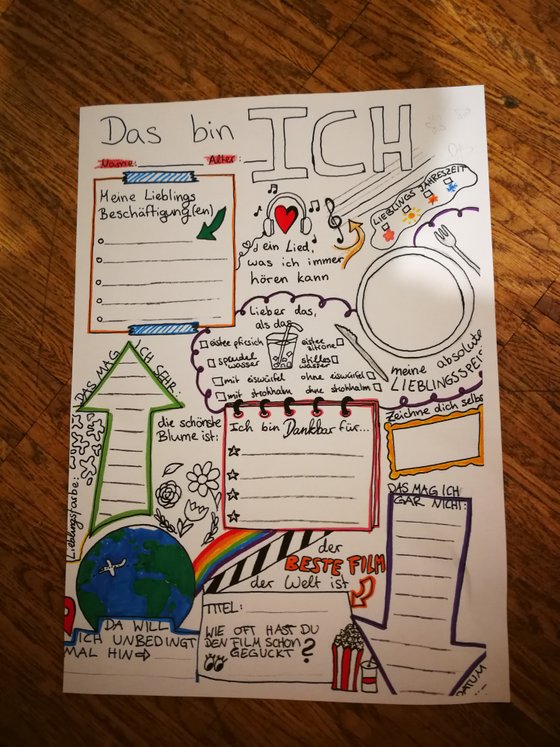 Das bin ICH
Name: Alter:
Meine Lieblings
Beschäftigung(en)
ein Lied,
was ich immer
hören kann
LIEBLINGS JAHRESZEIT
Lieber das,
als das
eistee pfirsich
eistee
zitrone
sprudel
wasser
stilles
wasser
mit eiswürfel
ohne eiswürfel
mit strohhalm
ohne strohhalm
meine absolute
LIEBLINGSSPEIS
Zeichne dich selbs
DAS MAG ICH SEHR:
die schönste
Blume ist:
Ich bin Dankbar für...
DAS MAG ICH
GAR NICHT:
Lieblingsfarbe:
der
BESTE FILM
der Welt ist
TITEL:
WIE OFT HAST DU
DEN FILM SCHON
GEGUCKT?
DA WILL
ICH UNBEDINGT
MAL HIN
DATUM